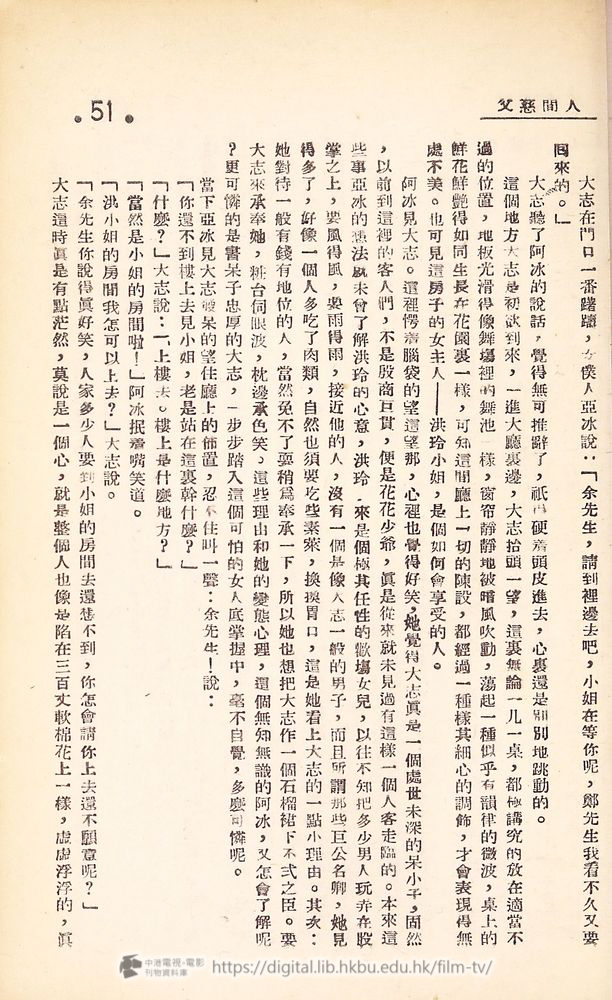 人間慈父
•51•
大志在門口一番躇躊，女僕人亞冰說：「余先生，請到裡邊去吧，小姐在等你呢，鄭先生我看不久又要
回來的。」
大志聽了阿冰的說話，覺得無可推辭了，祇得硬着頭皮進去，心裏還是別別地跳動的。
這個地方大志是初次到來，一進大廳裏邊，大志抬頭一望，這裏無論一几一桌，都極講究的放在適當不
過的位置，地板光滑得像舞塲裡的舞池一樣，窗帘靜靜地被晴風吹動，蕩起一種似乎有韻律的微波，桌上的
鮮花鮮艷得如同生長在花園裏一樣，可知這間廳上一切的陳設，都經過一種樣其細心的調飾，才會表現得無
處不美。也可見這房子的女主人——洪玲小姐，是個如何會享受的人。
阿冰見大志。這裡愕着腦袋的望這望那，心裡也覺得好笑，她覺得大志眞是一個處世未深的呆小子，固然
，以前到這裡的客人們，不是殷商巨賈，便是花花少爺，眞是從來就未見過有這樣一個人客走臨的。本來這
些事亞冰的想法就未曾了解洪玲的心意，洪玲 來是個極其任性的歡塲女兒，以往不知把多少男人玩弄在股
掌之上，要風得風，要雨得雨，接近他的人，沒有一個是像大志一般的男子，而且所謂那些巨公名卿，她見
得多了，好像一個人多吃了肉類，自然也須要吃些素菜，換換胃口，這是她看上大志的一點小理由。其次：
她對待一般有錢有地位的人，當然免不了要稍爲奉承一下，所以她也想把大志作一個石榴裙下不弍之臣。要
大志來承奉她，粧台伺眼波，枕邊承色笑。這些理由和她的變態心理，這個無知無識的阿冰，又怎會了解呢
？更可憐的是書呆子忠厚的大志，一步步踏入這個可怕的女人底掌握中，毫不自覺，多麼可憐呢。
當下亞冰見大志獃呆的望住廳上的佈置，忍不住叫一聲：余先生！說：
「你還不到樓上去見小姐，老是站在這裏幹什麼？」
「什麼？」大志說：「上樓去。樓上是什麼地方？」
「當然是小姐的房間啦！」阿冰抿着嘴笑道。
「洪小姐的房間我怎可以上去？」大志說。
「余先生你說得眞好笑，人家多少人要到小姐的房間去還想不到，你怎會請你上去還不願意呢？」
大志這時眞是有點茫然，莫說是一個心，就是整個人也像是陷在三百丈軟棉花上一樣，虛虛浮浮的，眞
中港電視·電影
刊物資料庫
https://digital.lib.hkbu.edu.hk/film-tv/